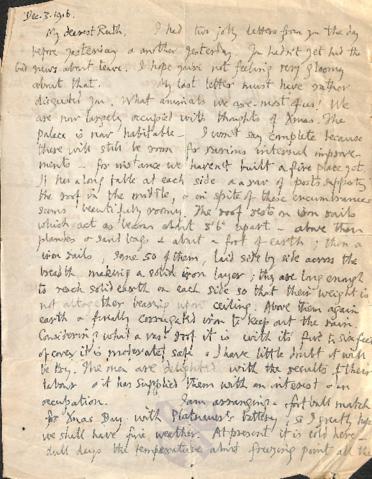 Dec. 3. 1916.
My dearest Ruth, I had two jolly letters from you the day
before yesterday & another yesterday. You hadn't yet had the
bad news about leave. I hope you're not feeling very gloomy
about that. My last letter must have rather
disgusted you. What animals we are most of us! We
are now largely occupied with thoughts of Xmas. The
palace is now habitable. I won't say complete because
there will still be room for various internal improve-
ments - for instance we haven't built a fire place yet.
It has a long table at each side & a row of posts supports
the roof in the middle, & in spite of these encumbrances
seems beautifully roomy. The roof rests on iron rails
which act as beams about 3'6" apart - above them
planks & sand bags & about a foot of earth; then
iron rails, some 50 of them, laid side by side across the
breadth making a solid iron layer; they are long enough
to reach solid earth on each side so that their weight is
not altogether bearing upon ceiling. Above them again
earth & finally corrugated iron to keep out the rain.
Considering what a vast roof it is with its five to six feet
of cover it is moderately safe & I have little doubt it will
be dry. The men are delighted with the results of their
labour & it has supplied them with an interest & an
occupation. I am arranging a football match
for Xmas Day with battery, & I greatly hope
we shall have fine weather. At present it is cold here -
dull days the temperature about freezing point all the